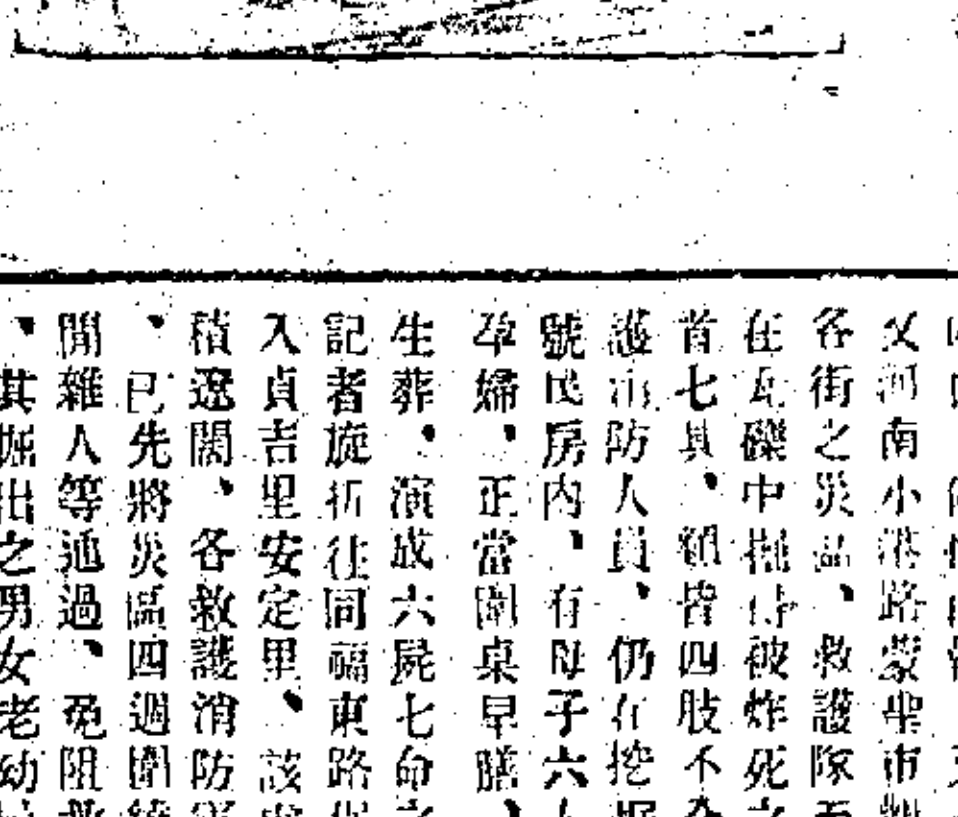 又河南小港路蒙聖市
各街之災區、救護隊
在瓦礫中掘得被炸死
首七具、類皆四肢不全
護消防人員、仍在挖掘
號民房内、有母子六人
孕婦、正當圍桌早膳、
生葬、演成六屍七命之
記者旋折往同福東路
入貞吉里安定里、該
積遼闊、各救護消防
、已先將災區四週圍
閒雜人等通過、免阻救
、其掘出之男女老幼